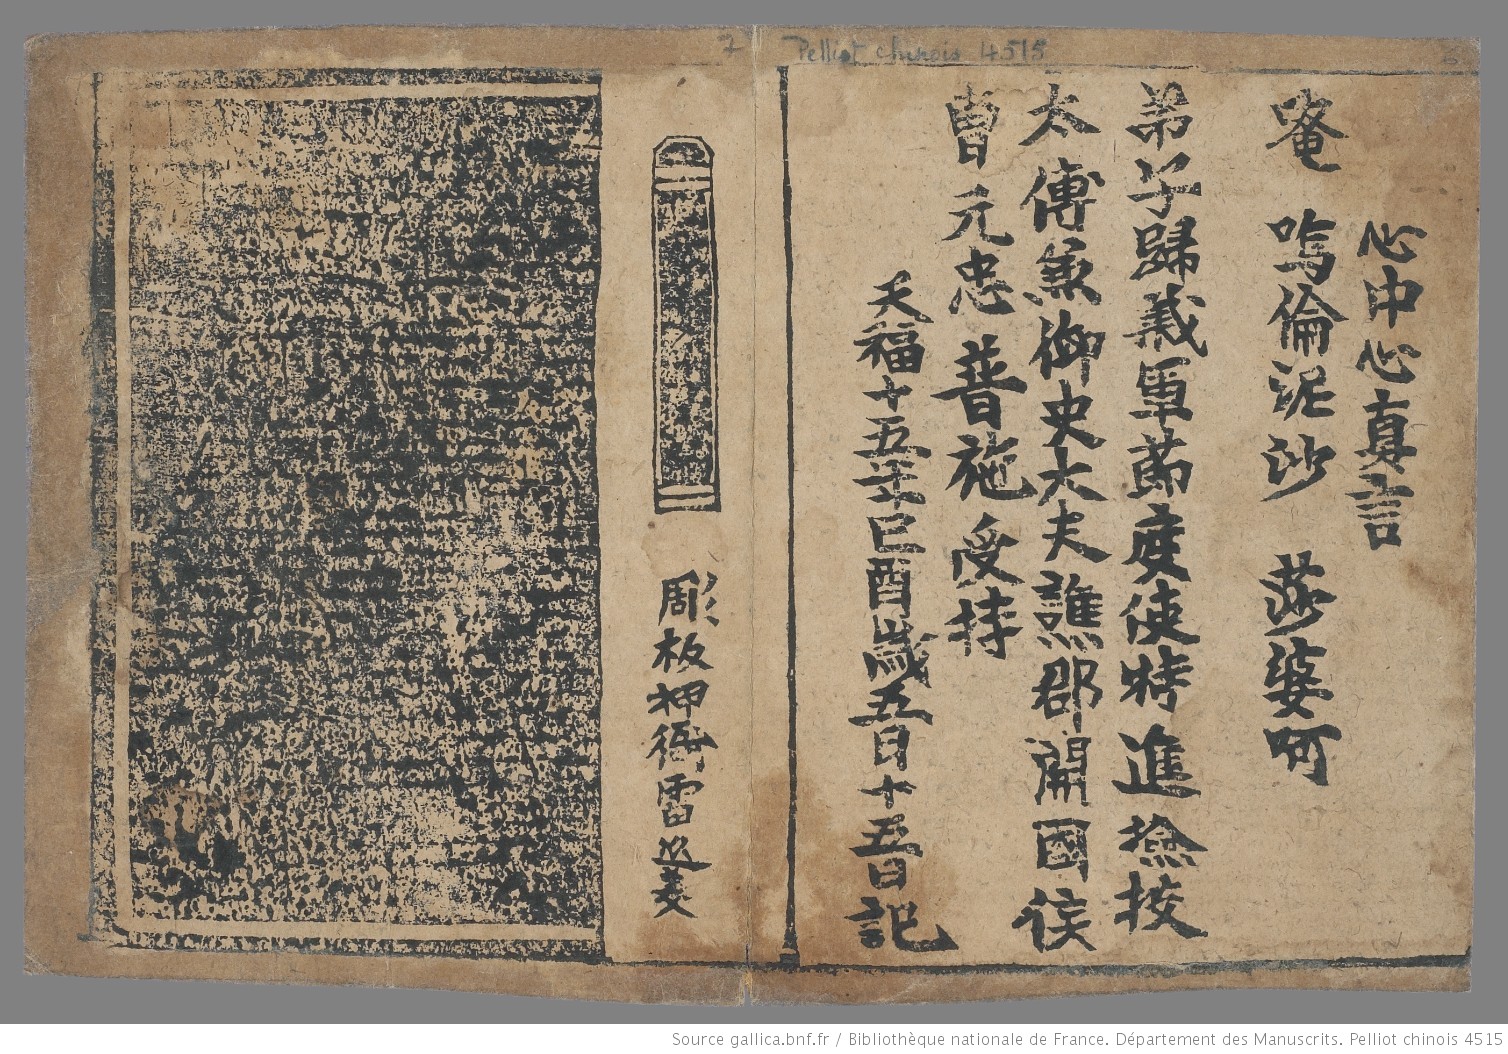 7
Pelliot chinois 4515
心中心真言
唵 嗚倫泥沙 莎婆呵
弟子歸義軍莭度使特進撿挍
太傅兼御史大夫譙郡開國侯
曹元忠普施受持
天福十五年己酉歲五月十五日記
彫板押衙雷延美
Source gallica.bnf.fr / Bibliothèque nationale de France. Département des Manuscrits. Pelliot chinois 4515